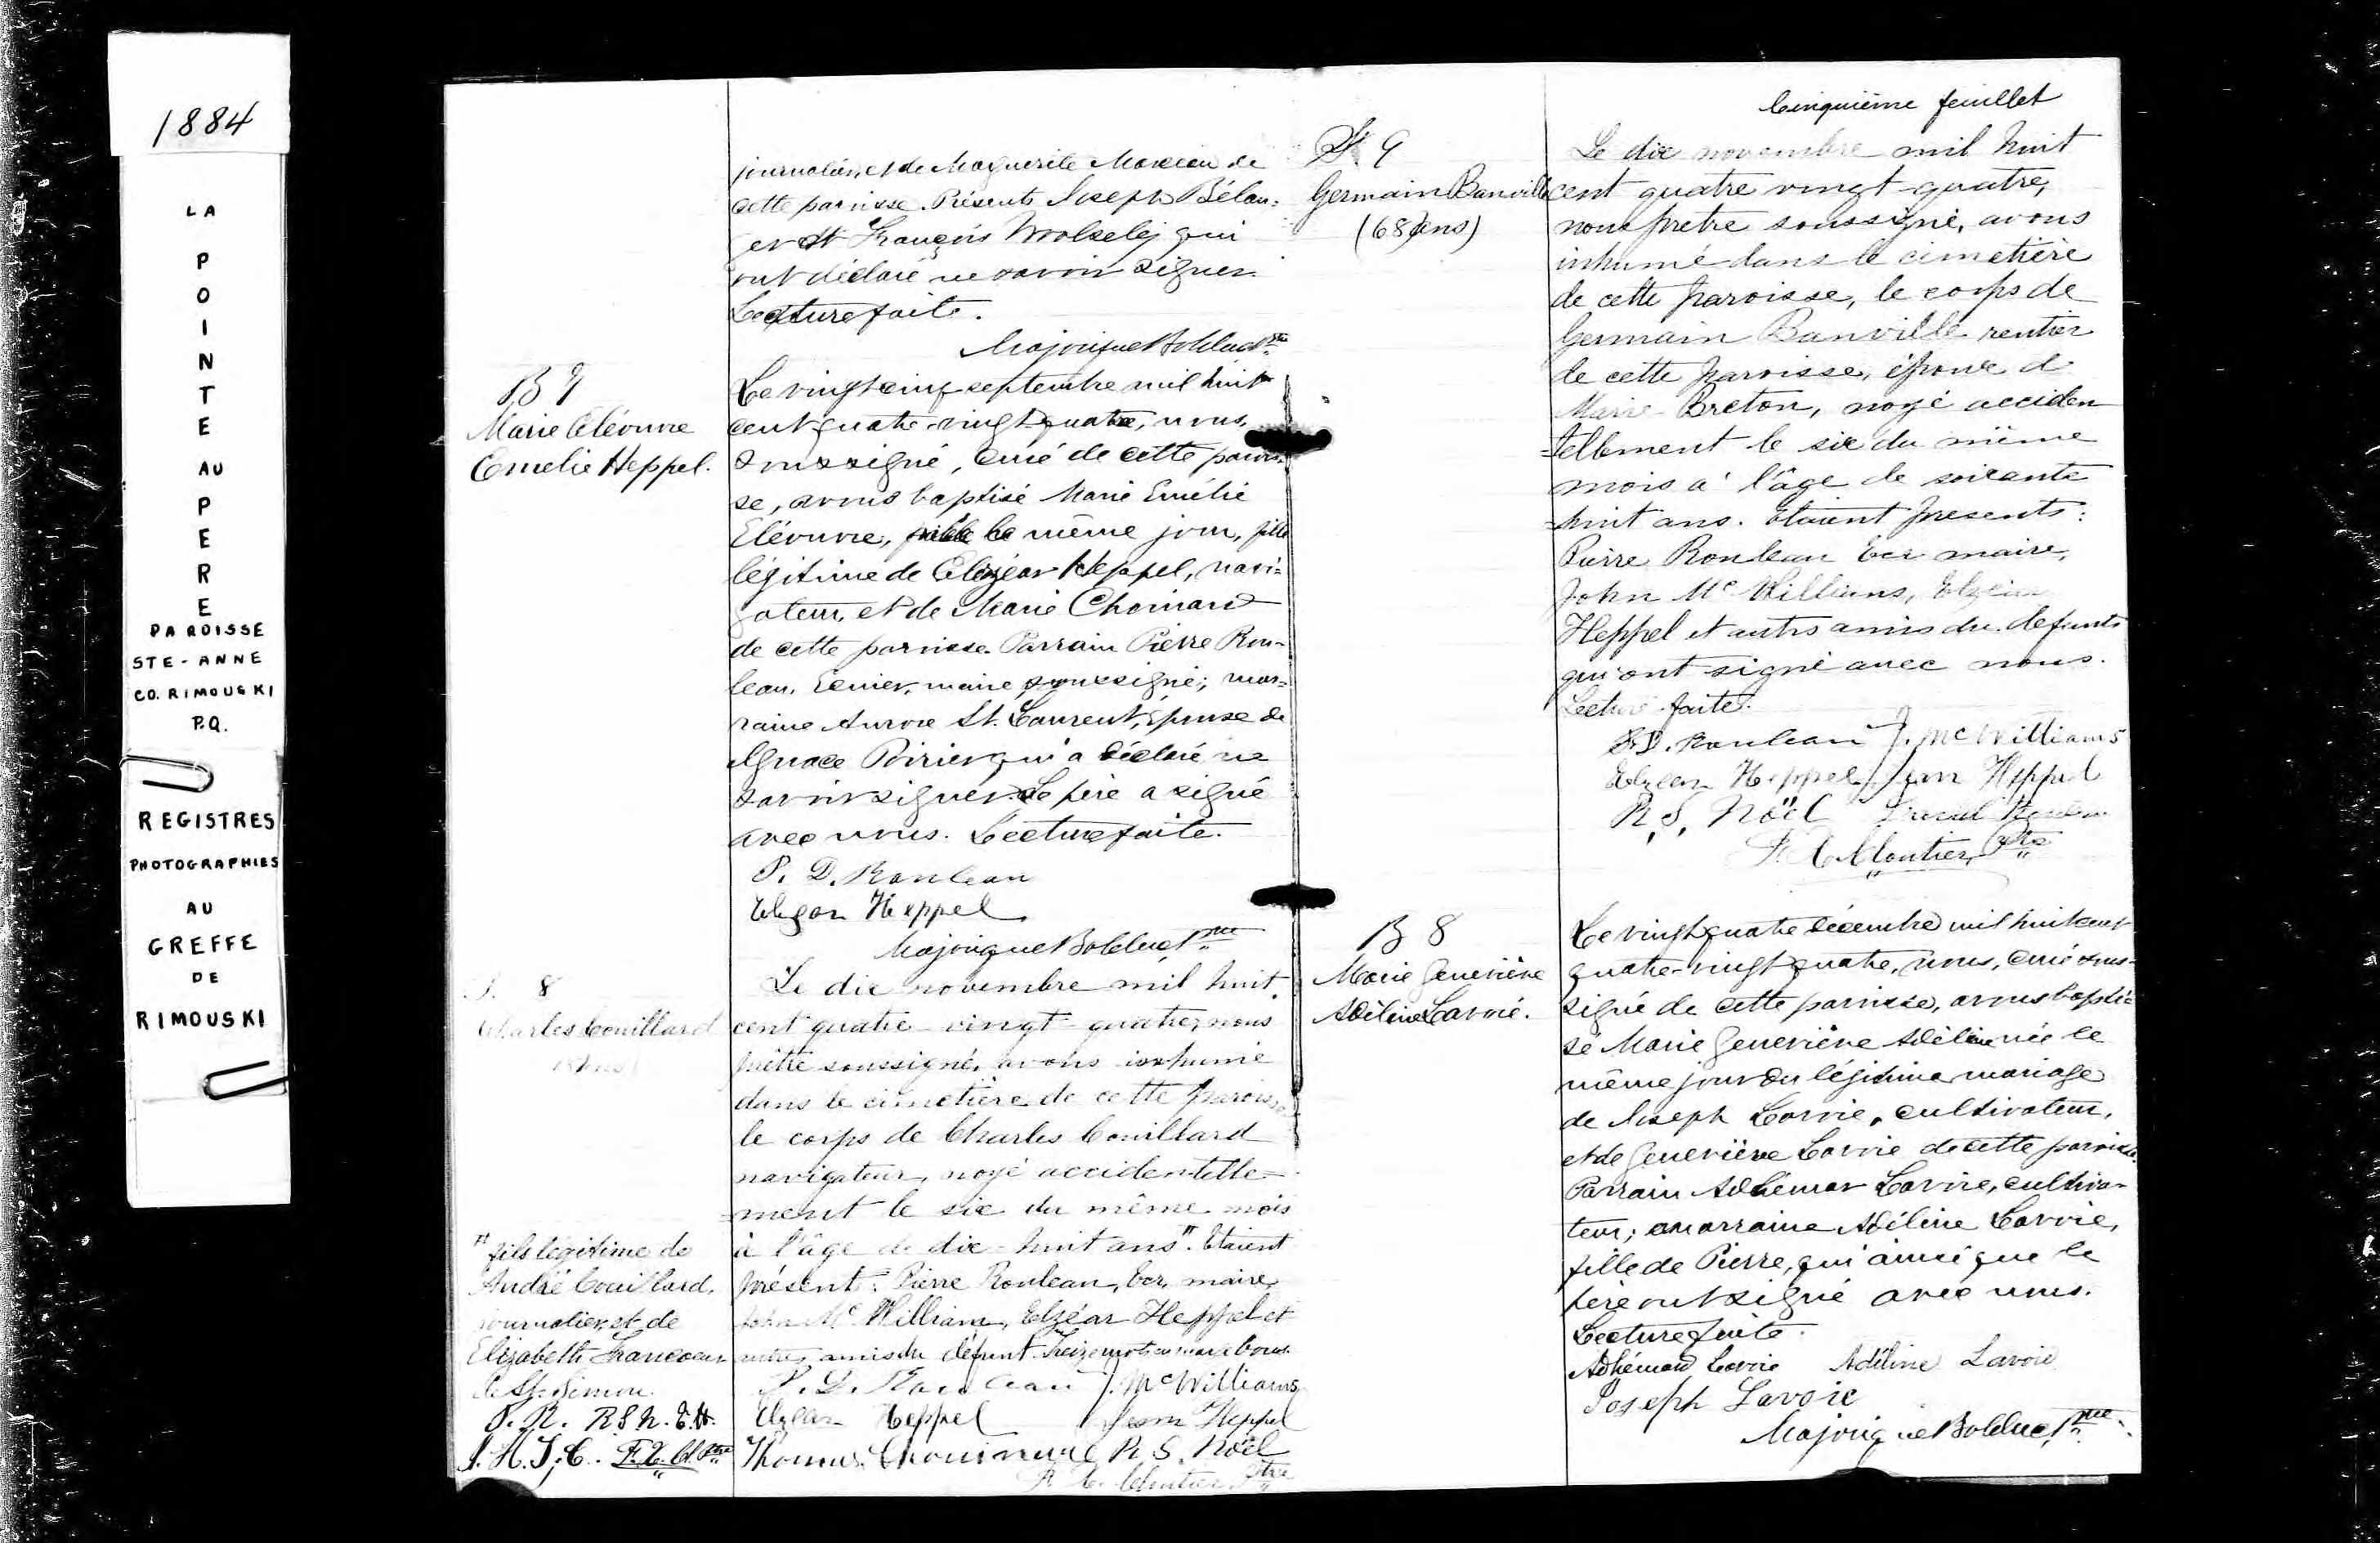 1884
LA
POINTE
AU
PERE
PAROISSE
STE-ANNE
CO. RIMOUSKI
P.Q.
REGISTRES
PHOTOGRAPHIES
AU
GREFFE
DE
RIMOUSKI
journalier, et de Marguerite
cette paroisse. Présents Joseph Bélan=
ger et François Wolseley qui
ont déclaré ne savoir signer.
Lecture faite.
Majorique Bolduc Ptre
B 7
Marie Elévuvre
Emelie Heppel.
Le vingt cinq septembre mil huit
cent quatre-vingt quatre, nous,
soussigné, curé de cette parois-
se, avons baptisé Marie Emélie
Elévuvre, née le même jour, fille
légitime de Elzéar Heppel, navi=
gateur, et de Marie Choinard
de cette paroisse. Parrain Pierre Rou-
leau, Ecuier, maire soussigné; mar=
raine Aurore St. Laurent, épouse de
Ignace Poirier qui a déclaré ne
savoir signer. Le père a signé
avec nous. Lecture faite.
P. D. Rouleau
Elzear Heppel
Majorique Bolduc Ptre
S. 8
Charles Couillard
18 ans
Le dix novembre mil huit
cent quatre-vingt-quatre, nous
prêtre soussigné, avons inhumé
dans le cimetière de cette paroisse
le corps de Charles Couillard
navigateur, noyé accidentelle=
=ment le six du même mois
à l'âge de dix-huit ans". Etaient
présent: Pierre Rouleau, Ecr, maire,
John Mc William, Elzéar Heppel et
autres amis du défunt. Treize mots en marge bons.
P. D. Rouleau J. McWilliams
Elzear Heppel Jean Heppel
Thomas Chouinard R. S. Noël
F. X. Cloutier Ptre
" fils légitime de
André Couillard,
journalier, et de
Elizabeth Francoeur
de St. Simon.
P. R. R.S.N. E.H.
J. H. T. C. F. X. Cl. Ptre
Cinquième feuillet
S. 9
Germain Banville
(68 ans)
Le dix novembre mil huit
cent quatre vingt-quatre,
nous prêtre soussigné, avons
inhumé dans le cimetière
de cette paroisse, le corps de
Germain Banville rentier
de cette paroisse, époux de
Marie Breton, noyé acciden
=tellement le six du même
mois à l'âge de soixante
=huit ans. Etaient présents:
Pierre Rouleau Ecr maire,
John Mc Williams, Elzéar
Heppel et autres amis du defunts
qui ont signé avec nous.
Lecture faite.
P. D. Rouleau J. McWilliams
Elzear Heppel Jean Heppel
R. S. Noël Rouleau
F. X. Cloutier, Ptre
B 8
Marie Geneviève
Adéline Lavoie.
Le vingt quatre décembre mil huit cent
quatre-vingt quatre, nous, curé sous-
signé de cette paroisse, avons bapti=
sé Marie Geneviève Adéline née le
même jour du légitime mariage
de Joseph Lavoie, cultivateur,
et de Geneviève Lavoie de cette paroisse.
Parrain Adhémar Lavoie, cultiva-
teur; marraine Adéline Lavoie,
fille de Pierre, qui ainsi que le
père ont signé avec nous.
Lecture faite.
Adhémard Lavoie Adéline Lavoie
Joseph Lavoie
Majorique Bolduc, Ptre.